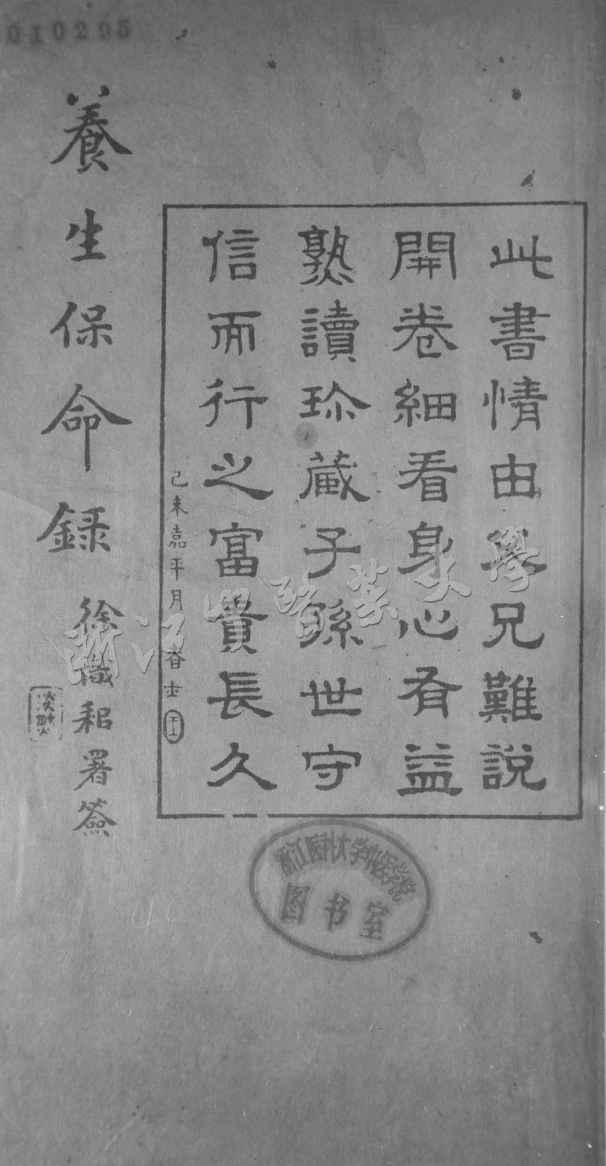 010295
此書情由父兄難說
開卷細看身心有益
熟讀珍藏子孫世守
信而行之富貴長久
己未嘉平月
養生保命錄
徐儀和署簽
浙江中醫藥大學
浙江医科大学中医学院
图书室